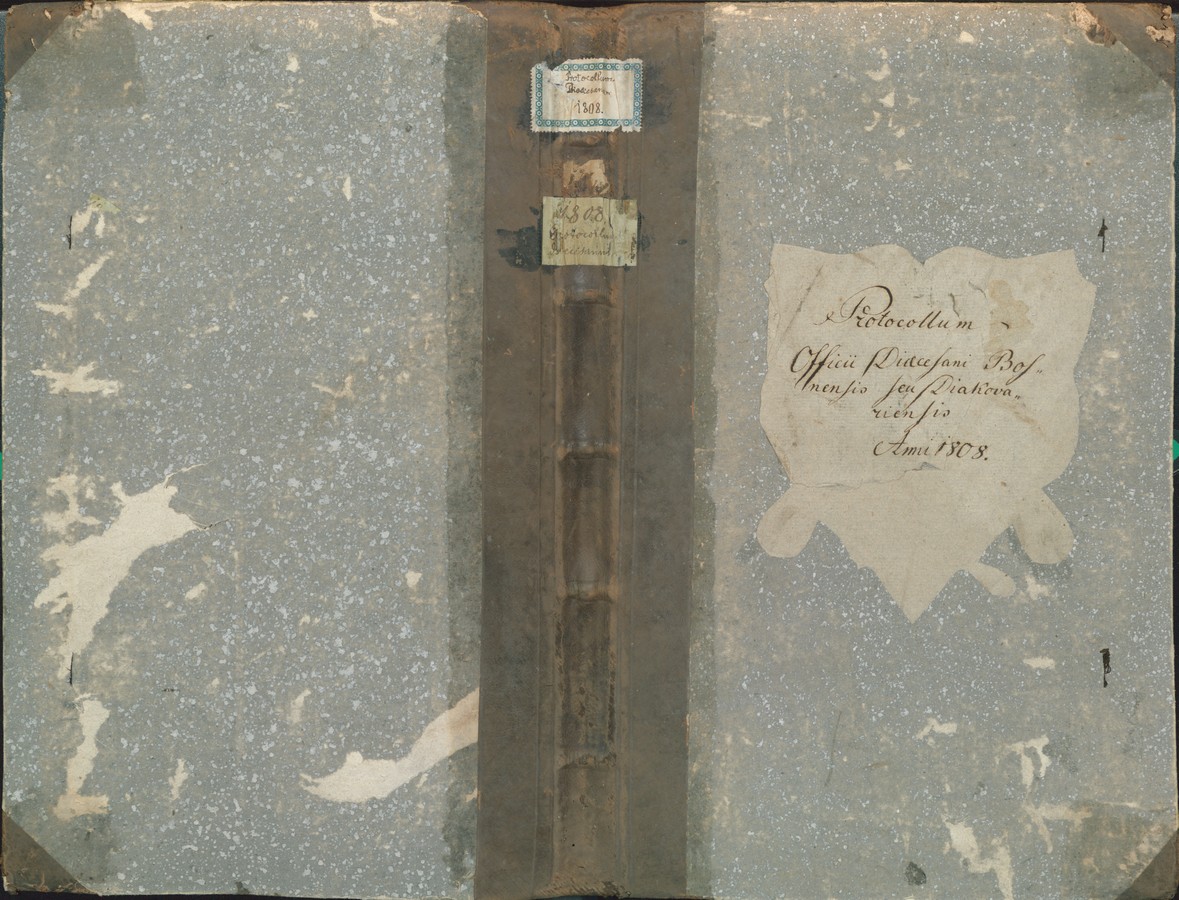 Protocollum
Diœcesanum
1808.
1808
Protocollum
Protocollum
Officii Diœcesani Bos„
nensis seu Diakova„
riensis
Anni 1808.